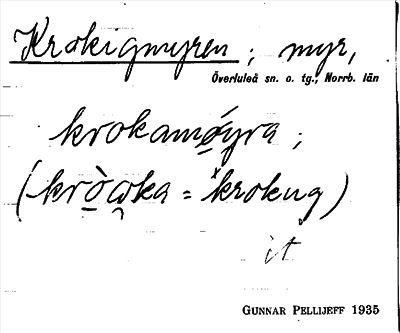 Krokigmyren ; myr,
Överluleå sn. o. tg., Norrb. län
krokamǿ̲yra ;
(krò̲ω̮ka = ˣkrokug)
it
GUNNAR PELLIJEFF 1935